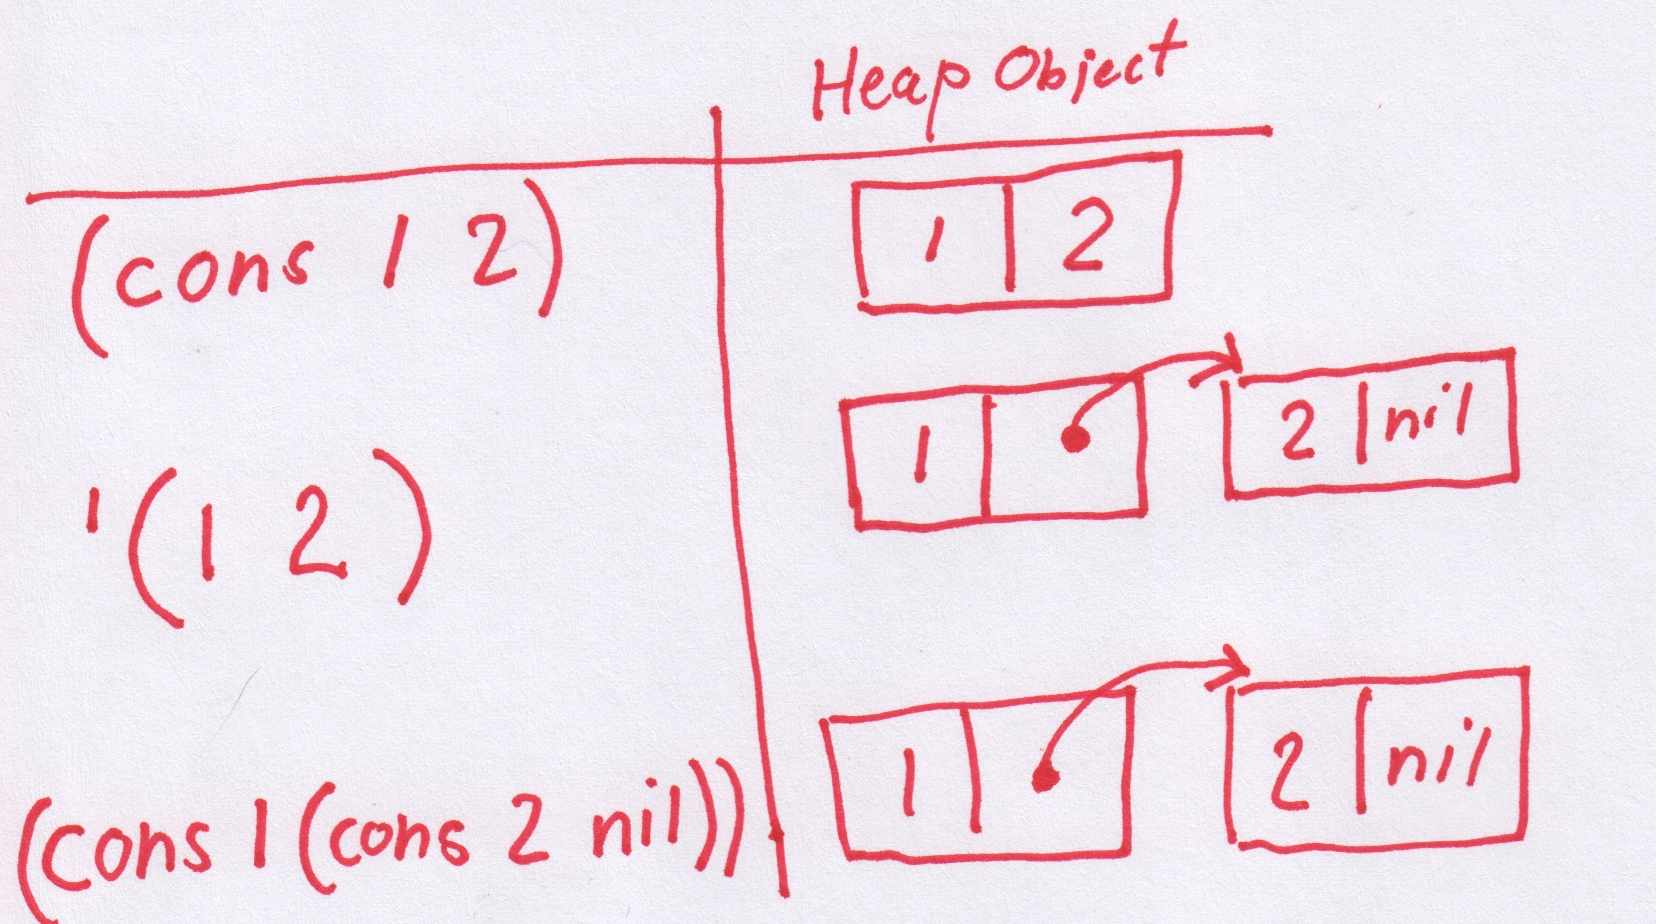 Heap Object
(cons 1 2)
1 2
'(1 2)
1
2 nil
(cons 1 (cons 2 nil))
1
2 nil